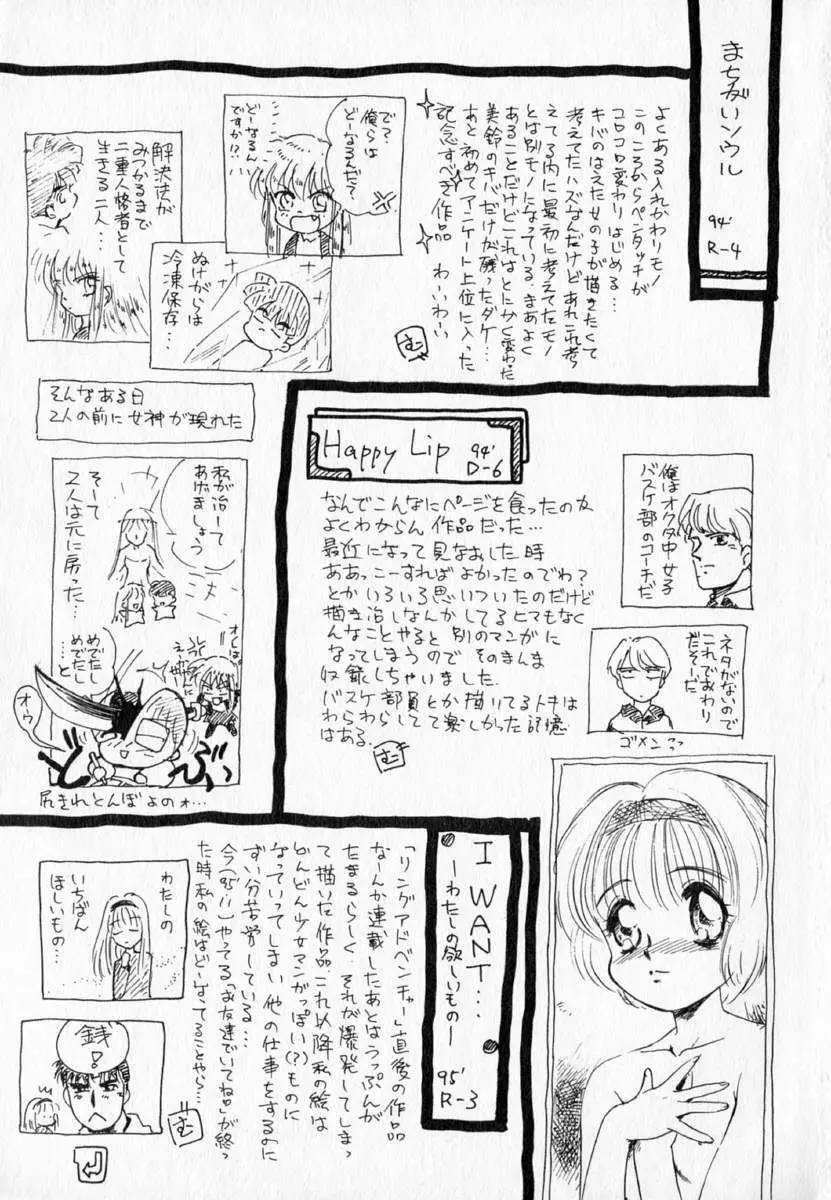 まちがいソウル
94'
R-4
よくある入れかわりモノ
このころからペンタッチが
コロコロ変わりはじめる…
キバのはえた女の子が描きたくて
考えてたハズなんだけどあれこれ考
えてる内に最初に考えてたモノ
とは別モノになっている。まあよく
あることだけどこれはとにかく変わった
美鈴のキバだけが残ったダケ…
あと初めてアンケート上位に入った
記念すべき作品 わーいわーい
む
で?
俺らは
どーなるんだ?
どーなるん
ですか!?
ぬけがらは
冷凍保存…
解決法が
みつかるまで
二重人格者として
生きる二人…
そんなある日
2人の前に女神が現れた
私が治して
あげましょう
そして
2人は元に戻った…
めでたし
めでたし
…と
オウ
尻きれとんぼよのォ…
Happy Lip
94'
D-6
なんでこんなにページを食ったのか
よくわからん作品だった…
最近になって見なおした時
ああっこーすればよかったのでわ?
とかいろいろ思いついたのだけど
描き治しなんかしてるヒマもなく
んなことやると別のマンガに
なってしまうのでそのまんま
収録しちゃいました.
バスケ部員とか描いてるトキは
わらわらしてて楽しかった記憶
はある.
む
俺はオクタ中女子
バスケ部のコーチだ
ネタがないので
これでおわり
だそーだ
ゴメンっっ
I WANT…
ーわたしの欲しいものー
95'
R-3
「リングアドベンチャー」直後の作品
なーんか連載したあとはうっぷんが
たまるらしく それが爆発してしまっ
て描いた作品.これ以降私の絵は
どんどん少女マンガっぽい(?)ものに
なっていってしまい他の仕事をするのに
ずい分苦労している…
今('95.11)やってる「お友達でいてね♡」が終っ
た時私の絵はどーなってることやら…
む
わたしの
いちばん
ほしいもの…
銭!